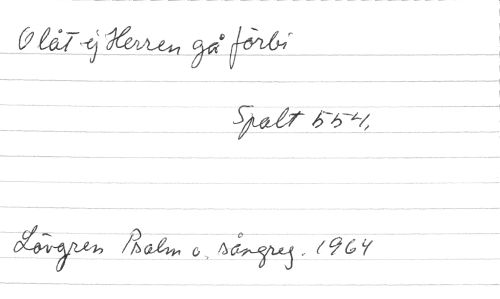 O låt ej Herren gå förbi
Spalt 554.
Lövgren Psalm o. sångreg. 1964